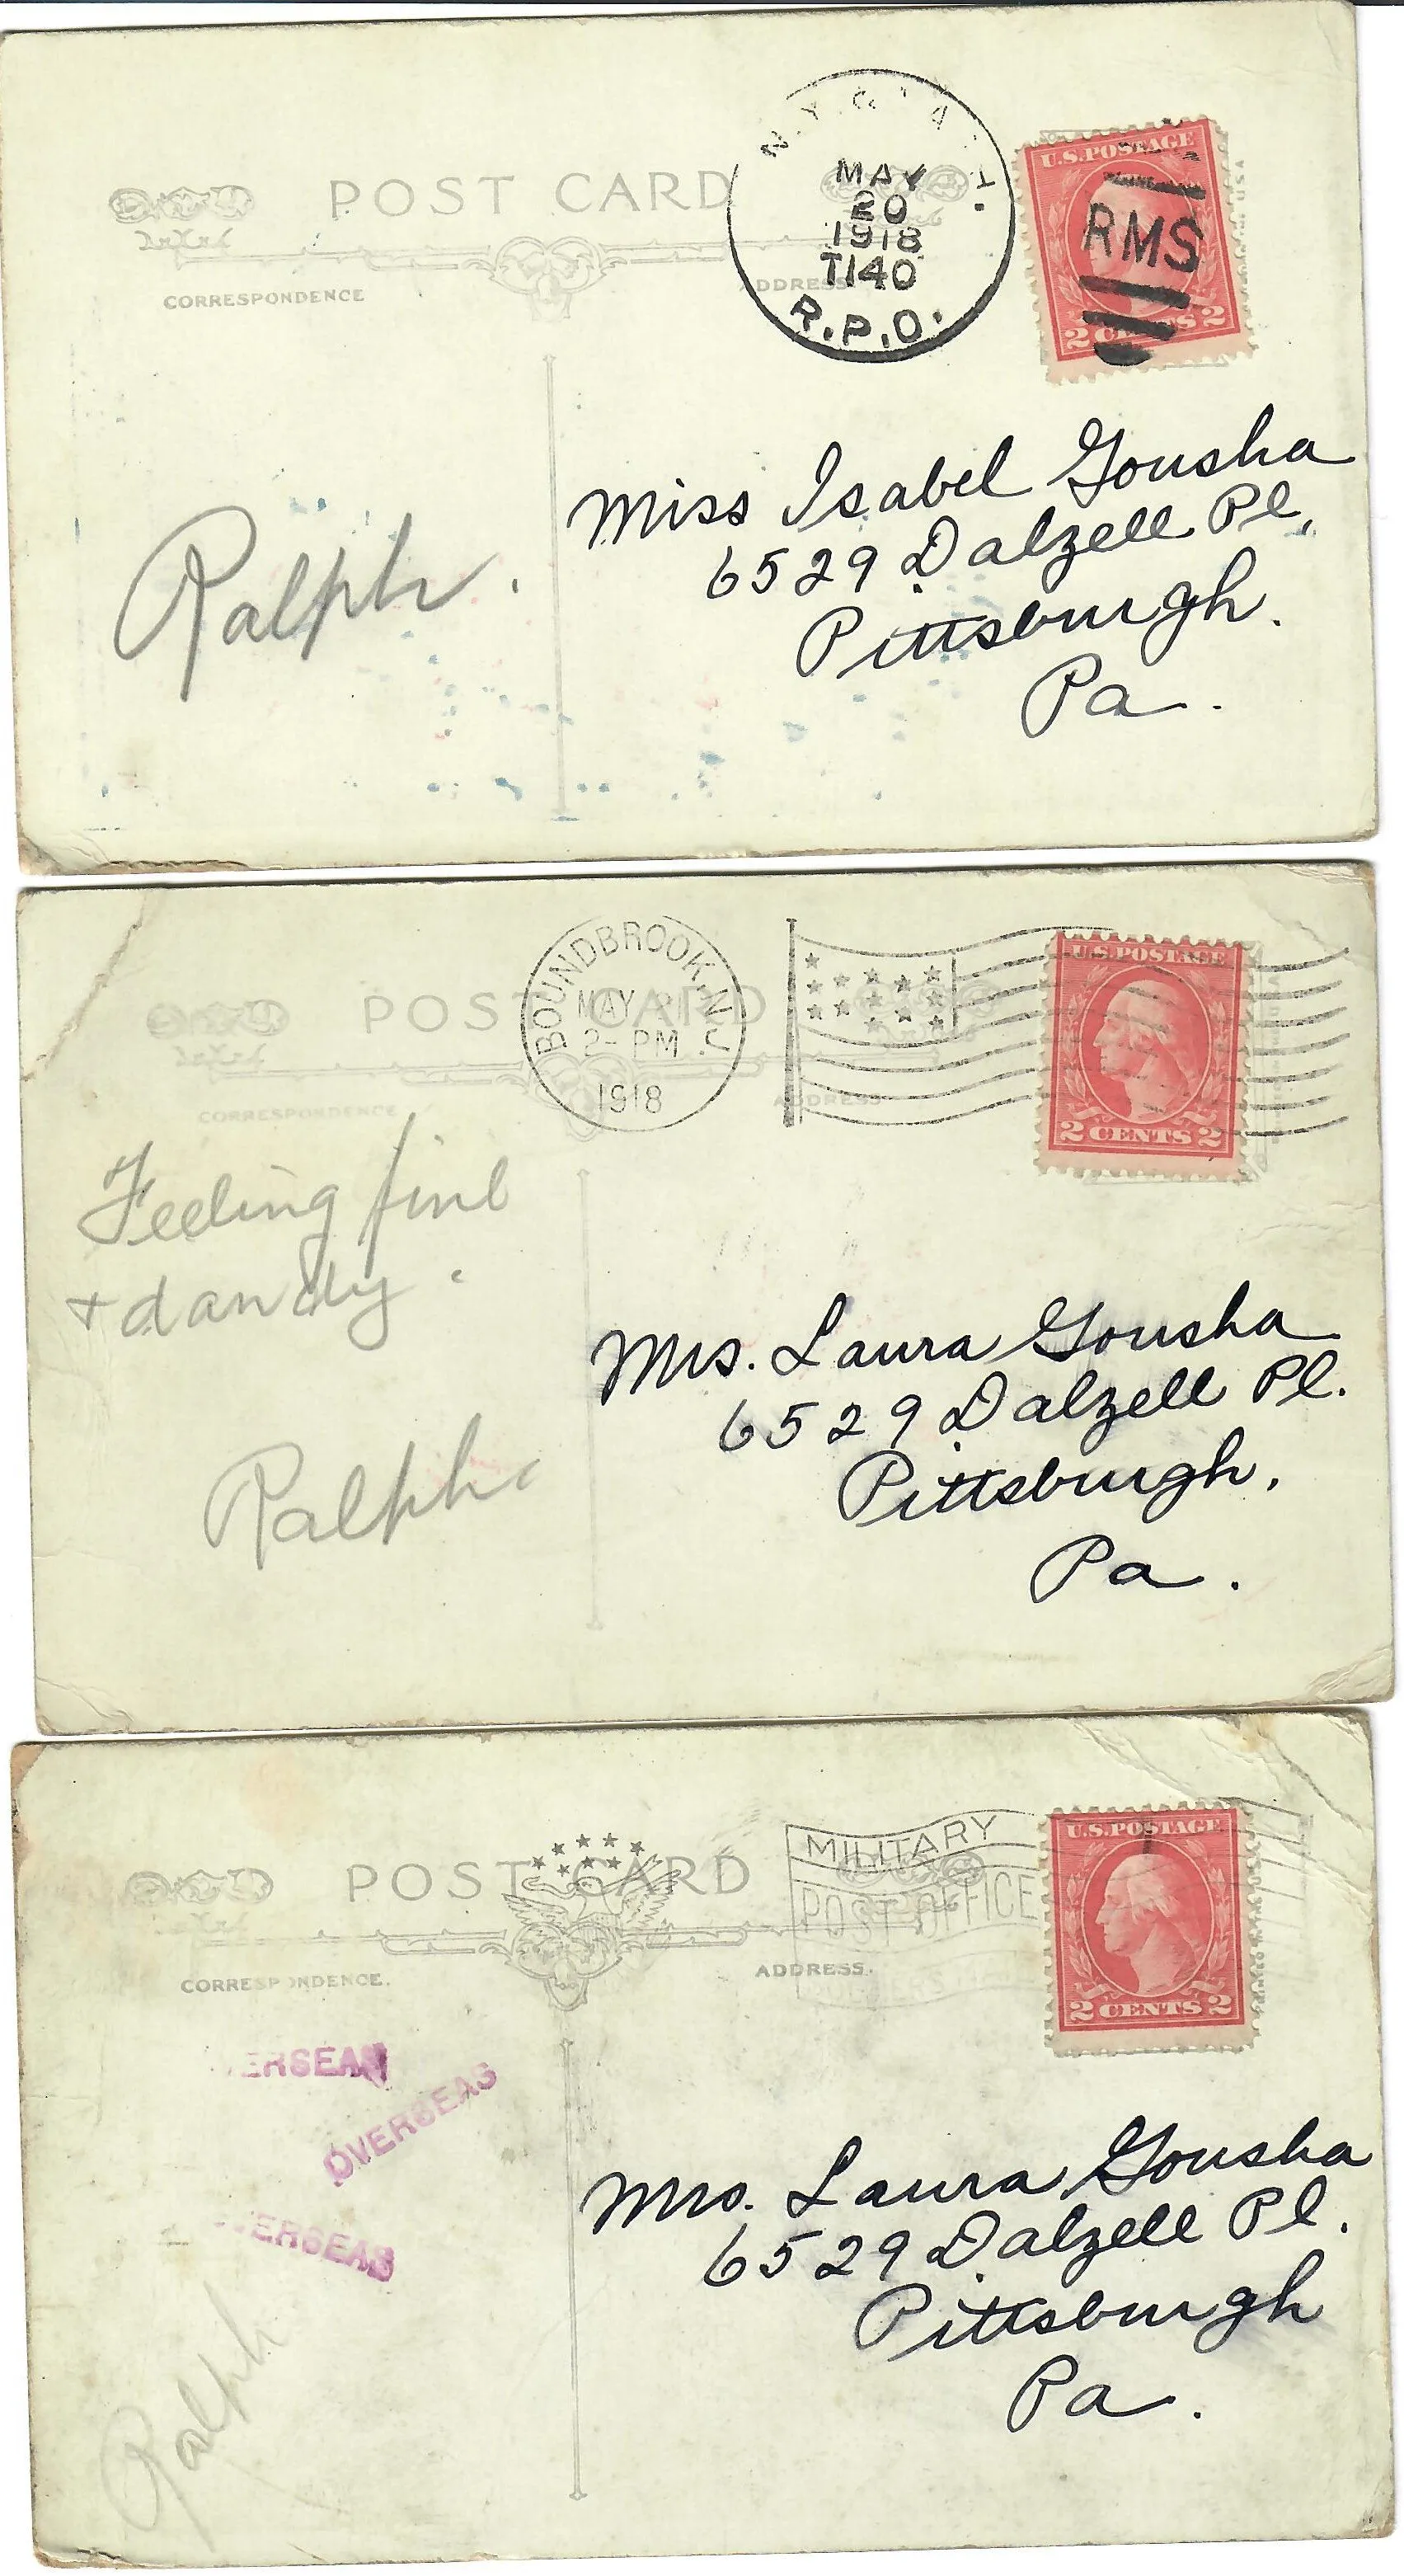 POST CARD
CORRESPONDENCE
ADDRESS
MAY
20
1918
T140
R.P.O.
U.S.POSTAGE
RMS
2 CENTS 2
Miss Isabel Gousha
6529 Dalzell Pl.
Pittsburgh.
Pa.
Ralph.
POST CARD
CORRESPONDENCE
ADDRESS
BOUNDBROOK, N.J.
MAY
2- PM
1918
U.S.POSTAGE
2 CENTS 2
Feeling fine
+ dandy.
Ralph.
Mrs. Laura Gousha
6529 Dalzell Pl.
Pittsburgh,
Pa.
POST CARD
CORRESPONDENCE.
ADDRESS.
MILITARY
POST OFFICE
U.S.POSTAGE
2 CENTS 2
OVERSEAS
OVERSEAS
OVERSEAS
Ralph
Mrs. Laura Gousha
6529 Dalzell Pl.
Pittsburgh
Pa.